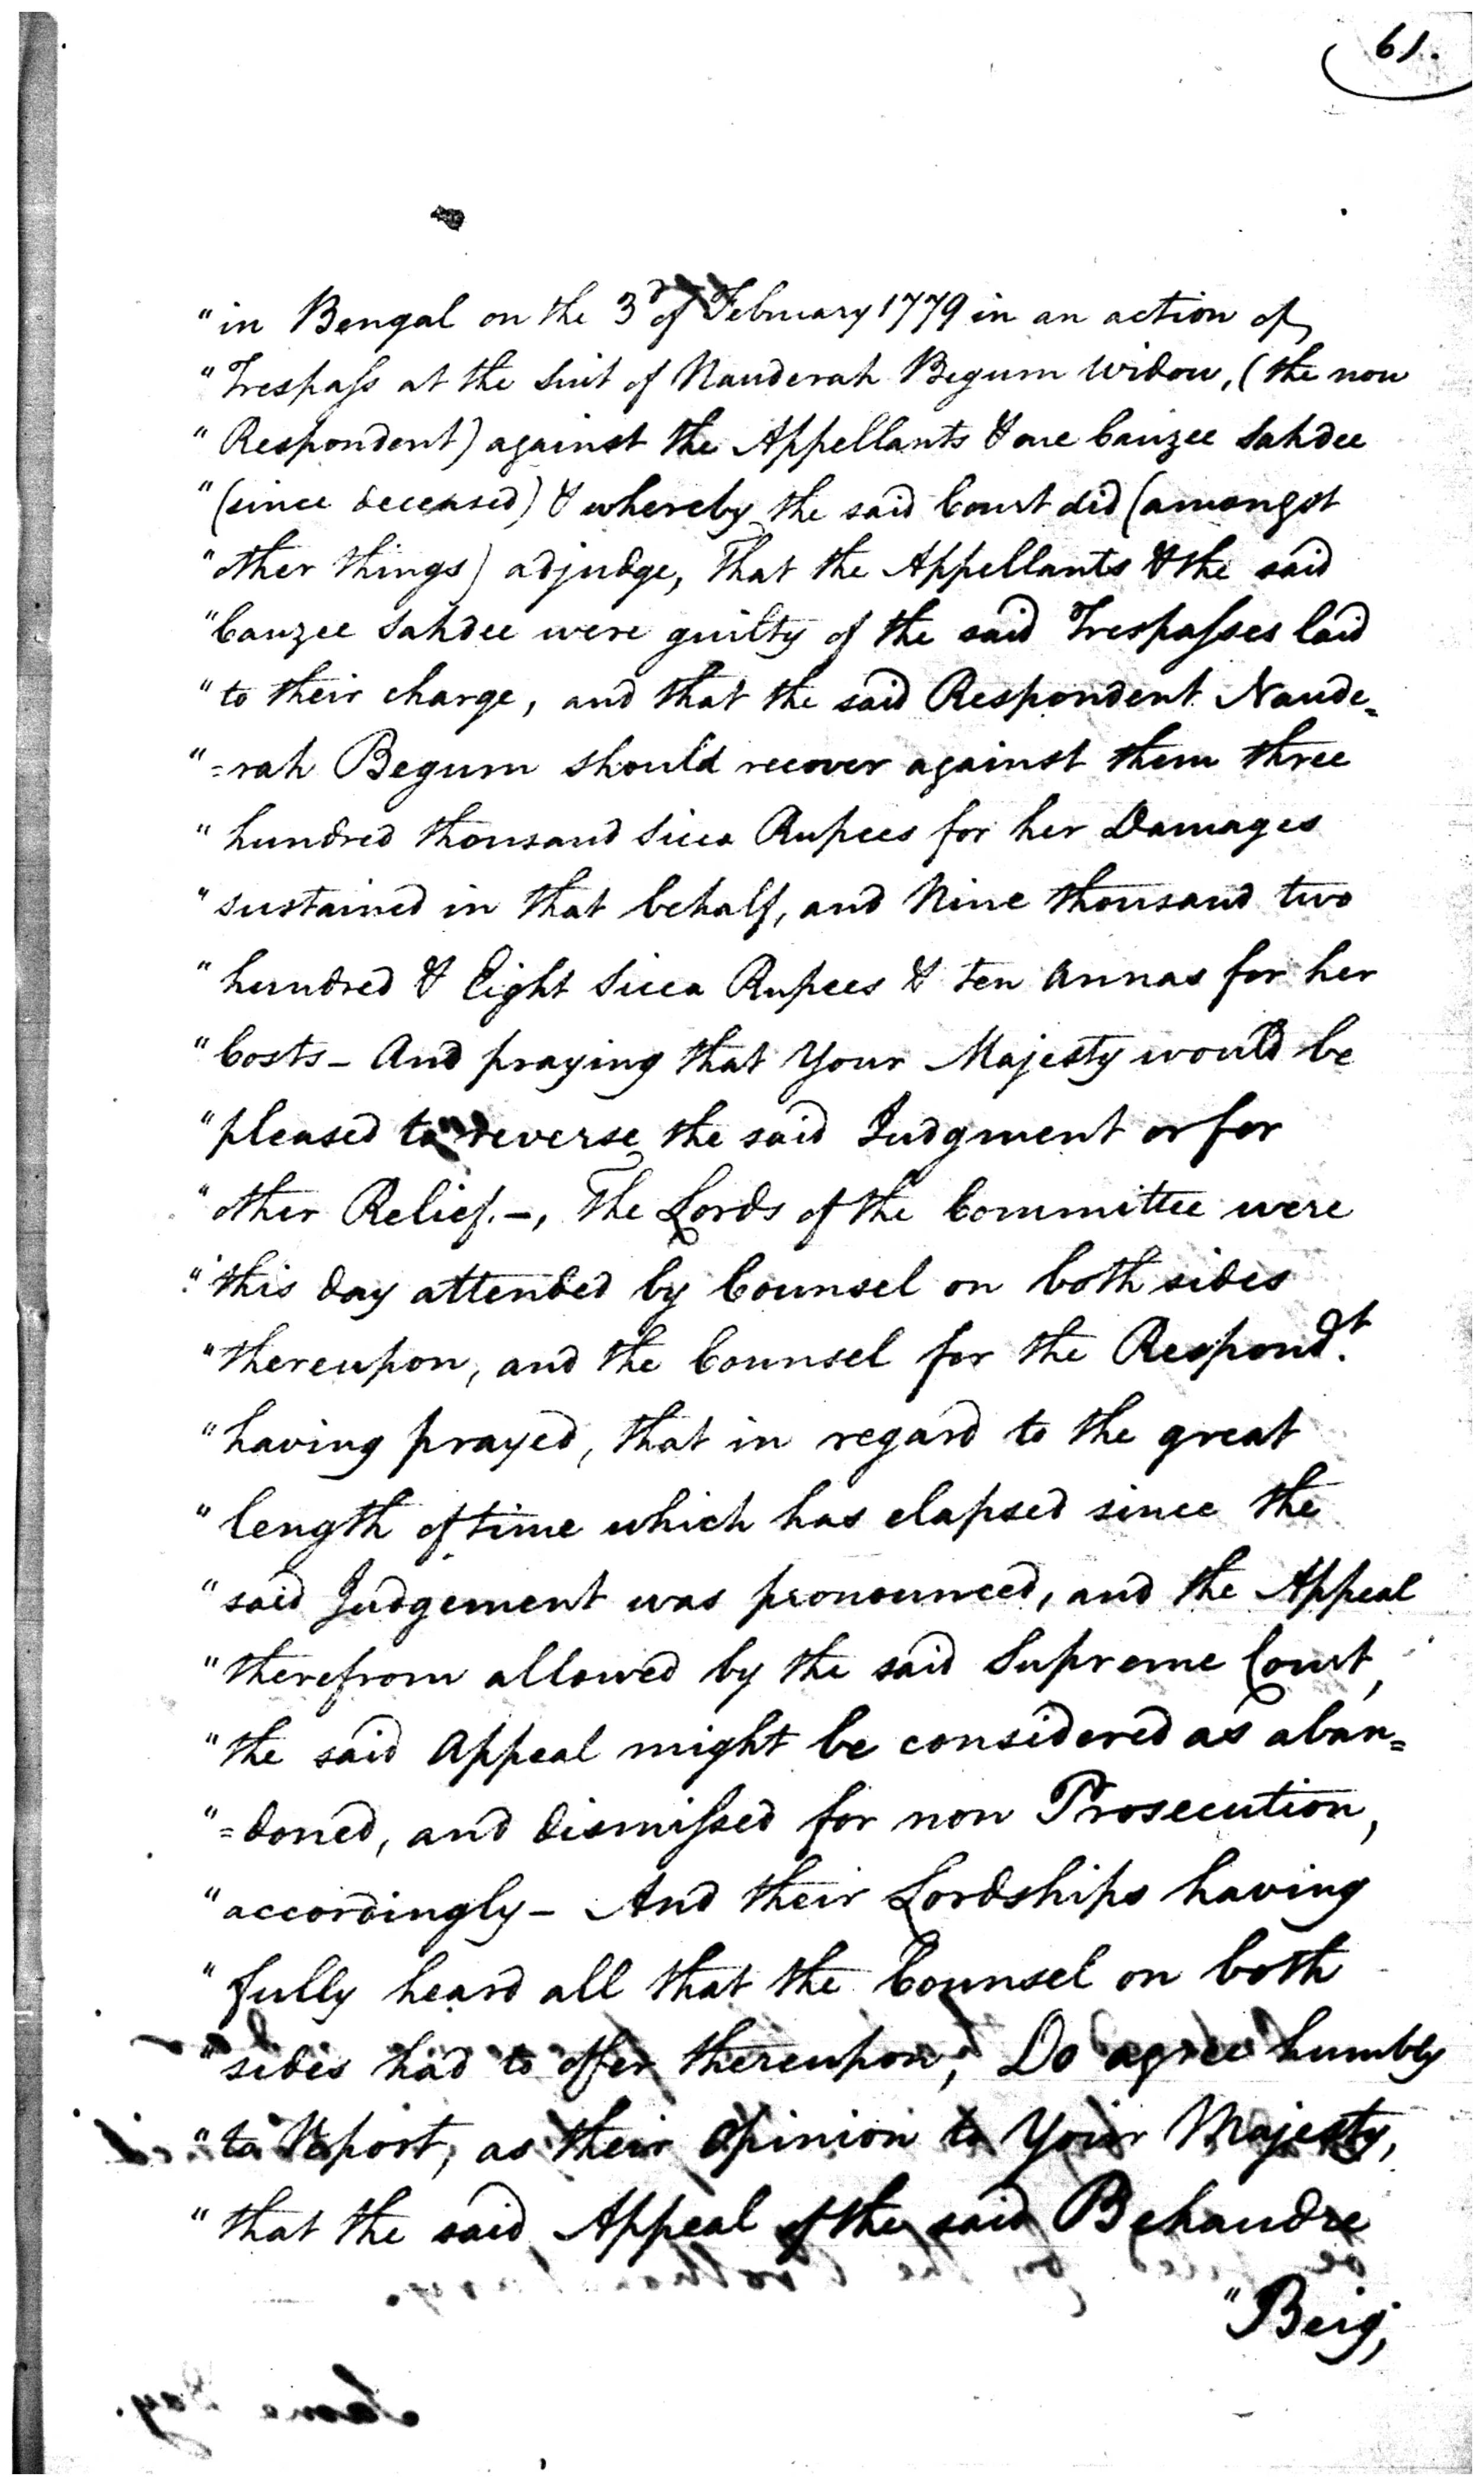 61.
"in Bengal on the 3d of February 1779 in an action of
"Trespaſs at the Suit of Nauderah Begum Widow, (the now
"Respondent) against the Appellants & one Cauzee Sahdee
"(since deceased) & whereby the said Court did (amongst
"other things) adjudge, That the Appellants & the said
"Cauzee Sahdee were guilty of the said Trespaſses laid
"to their charge, and that the said Respondent Naude=
"=rah Begum should recover against them three
"hundred thousand Sicca Rupees for her Damages
"sustained in that behalf, and Nine thousand two
"hundred & Eight Sicca Rupees & ten Annas for her
"Costs - And praying that Your Majesty would be
"pleased to reverse the said Judgment or for
"other Relief. -, The Lords of the Committee were
"this day attended by Counsel on both sides
"thereupon, and the Counsel for the Respondt.
"having prayed, that in regard to the great
"length of time which has elapsed since the
"said Judgement was pronounced, and the Appeal
"therefrom allowed by the said Supreme Court,
"the said Appeal might be considered as aban=
"=doned, and dismiſsed for non Prosecution,
"accordingly - And their Lordships having
"fully heard all that the Counsel on both
"sides had to offer thereupon, Do agree humbly
"to Report, as their Opinion to Your Majesty,
"that the said Appeal of the said Behaudre
"Beig,